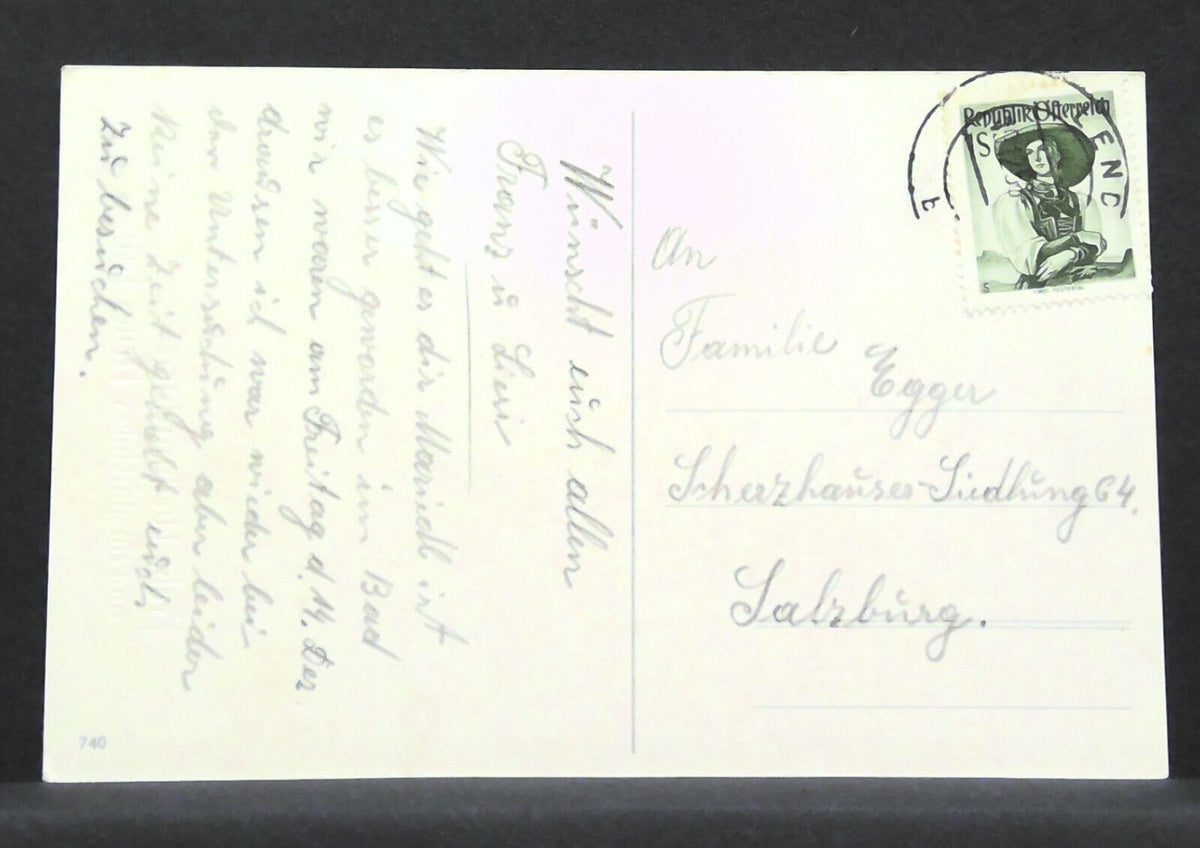 Wünscht euch allen
Franz u Liesi
Wie geht es dir Mariedl ist
es besser geworden im Bad
wir waren am Freitag d. 14. Dez
draussen ich war wieder bei
der Untersuchung aber leider
keine Zeit gehabt euch
zu besuchen.
740
Republik Österreich
1 S
S
ENC
t
An
Familie Egger
Scherzhauser-Siedlung 64.
Salzburg.